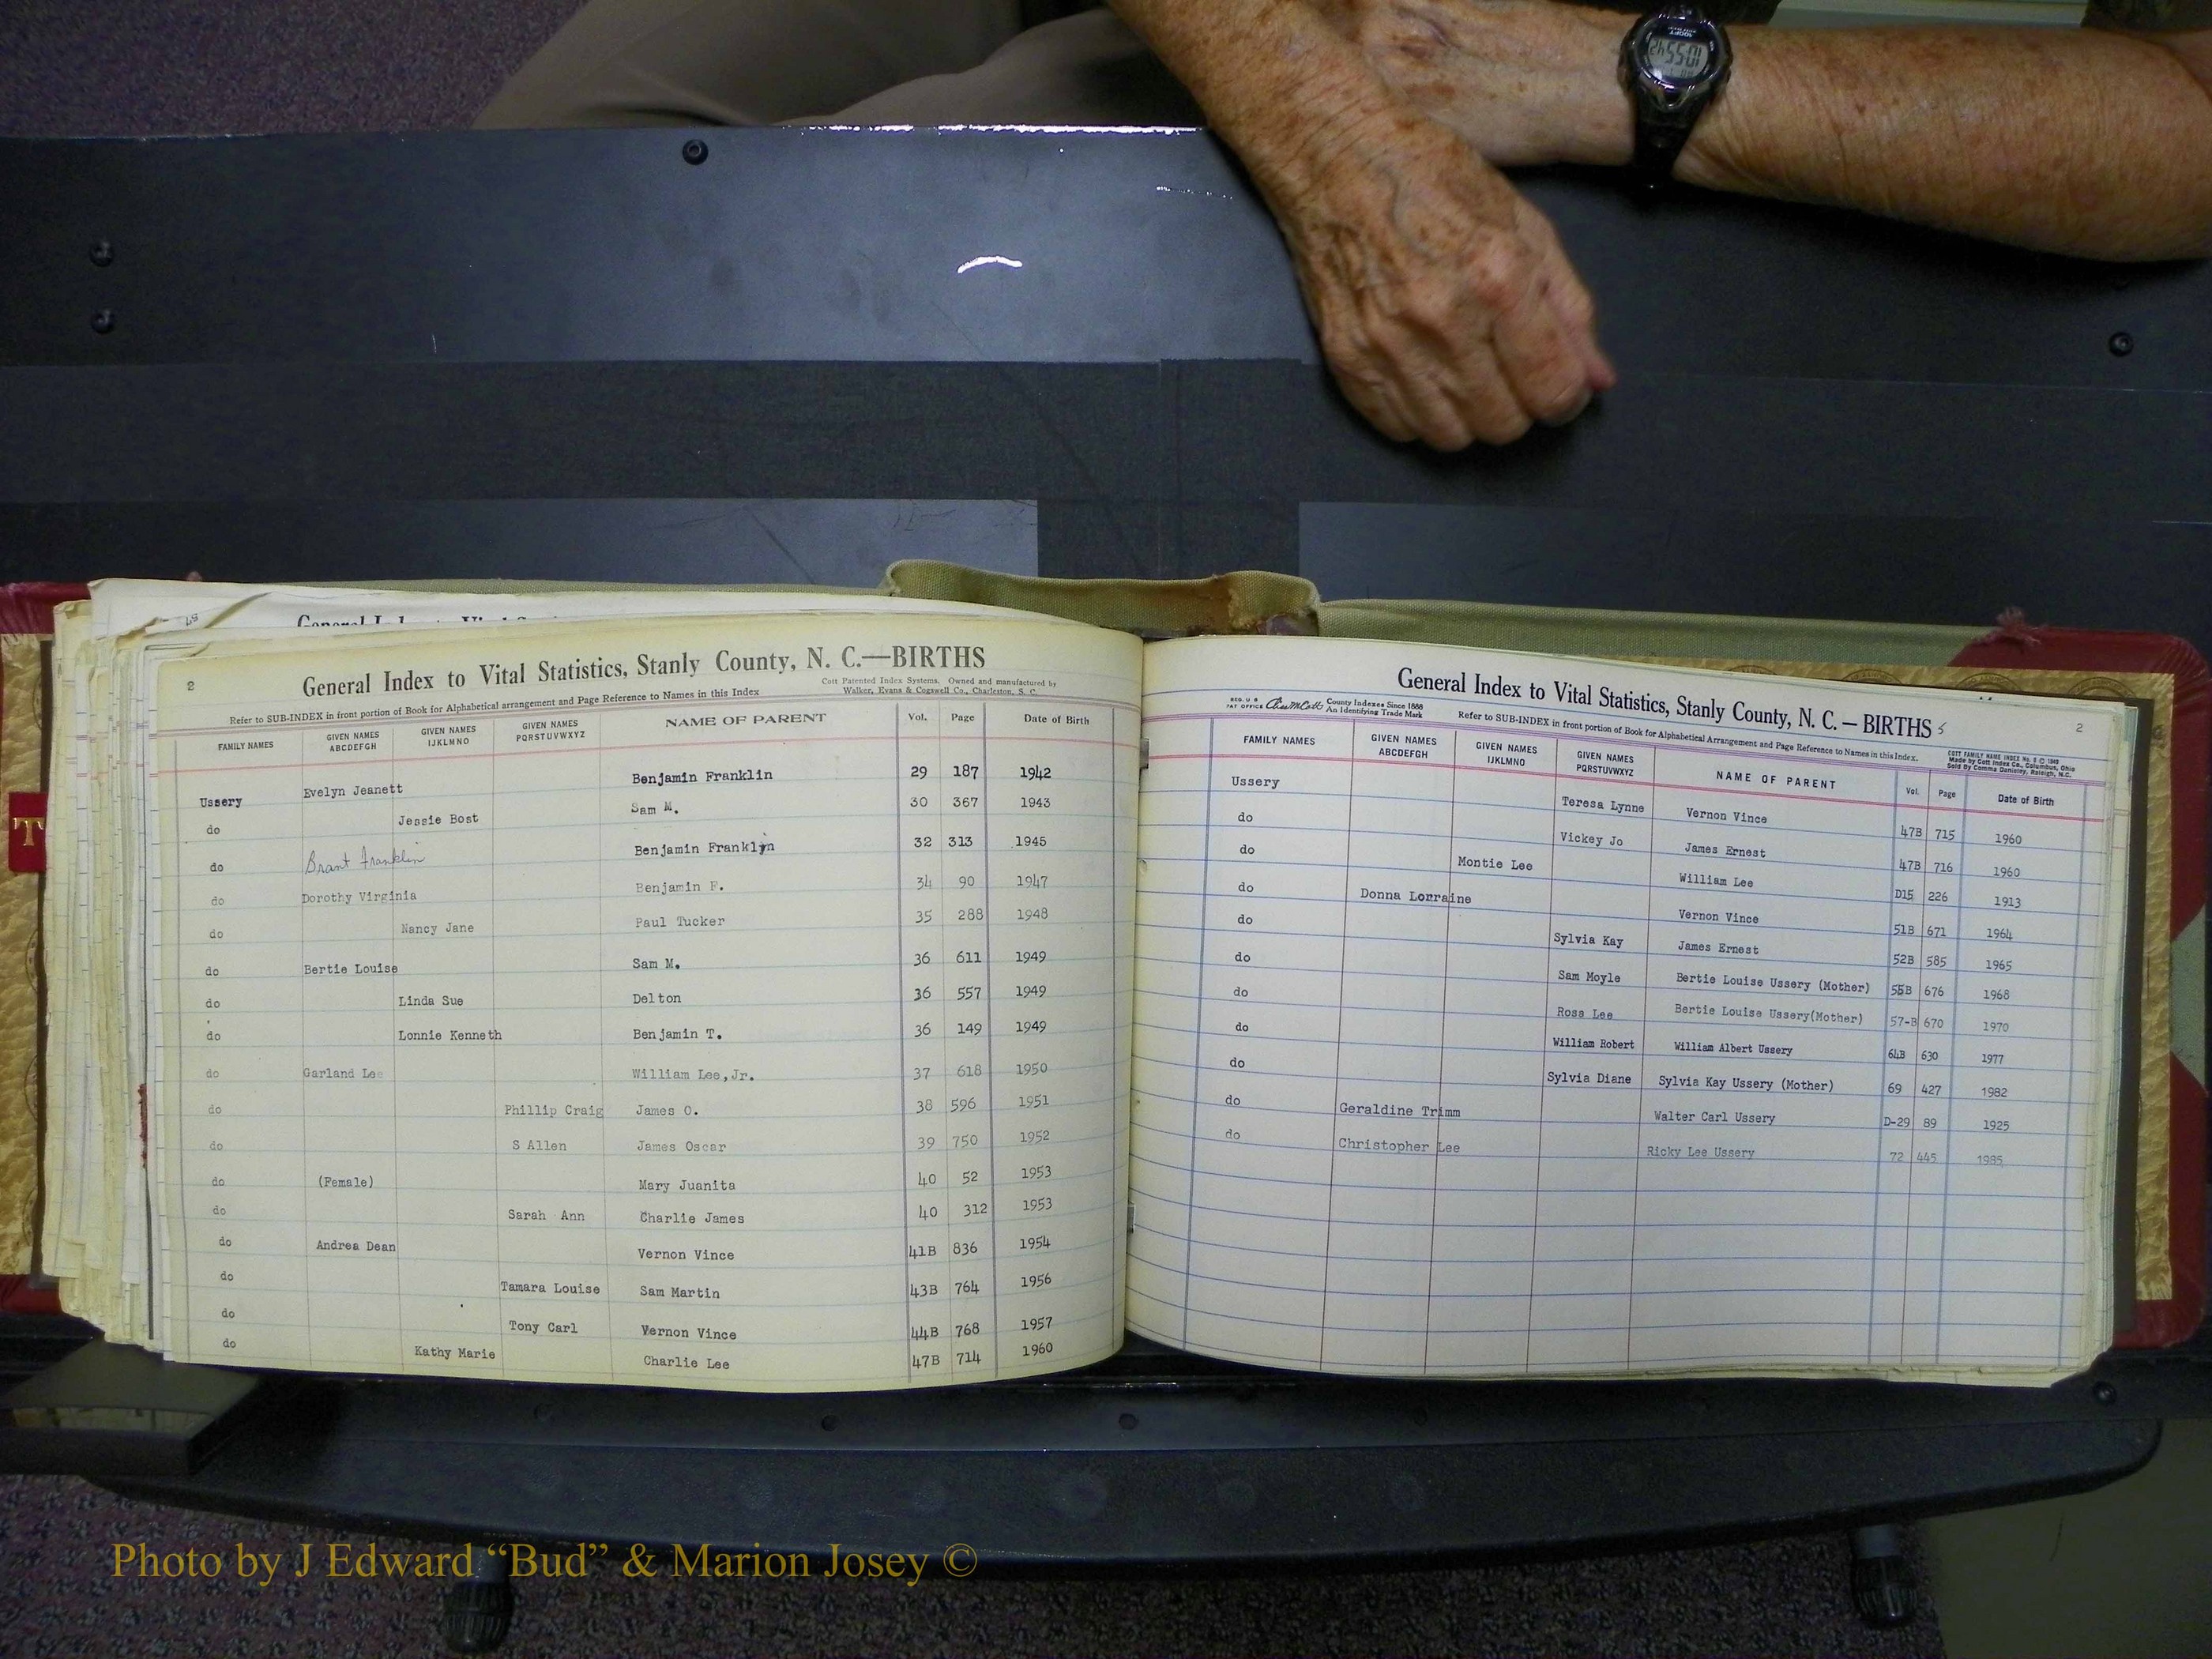 General Index to Vital Statistics, Stanly County, N. C.—BIRTHS
2
Cott Patented Index Systems. Owned and manufactured by
Walker, Evans & Cogswell Co., Charleston, S. C.
Refer to SUB-INDEX in front portion of Book for Alphabetical arrangement and Page Reference to Names in this Index
FAMILY NAMES GIVEN NAMES ABCDEFGH GIVEN NAMES IJKLMNO GIVEN NAMES PQRSTUVWXYZ NAME OF PARENT Vol. Page Date of Birth
Ussery Evelyn Jeanett Benjamin Franklin 29 187 1942
do Jessie Bost Sam M. 30 367 1943
do Brant Franklin Benjamin Franklin 32 313 1945
do Dorothy Virginia Benjamin F. 34 90 1947
do Nancy Jane Paul Tucker 35 288 1948
do Bertie Louise Sam M. 36 611 1949
do Linda Sue Delton 36 557 1949
do Lonnie Kenneth Benjamin T. 36 149 1949
do Garland Lee William Lee, Jr. 37 618 1950
do Phillip Craig James O. 38 596 1951
do S Allen James Oscar 39 750 1952
do (Female) Mary Juanita 40 52 1953
do Sarah Ann Charlie James 40 312 1953
do Andrea Dean Vernon Vince 41B 836 1954
do Tamara Louise Sam Martin 43B 764 1956
do Tony Carl Vernon Vince 44B 768 1957
do Kathy Marie Charlie Lee 47B 714 1960
General Index to Vital Statistics, Stanly County, N. C. — BIRTHS
2
REG. U S PAT OFFICE County Indexes Since 1888
An Identifying Trade Mark
Refer to SUB-INDEX in front portion of Book for Alphabetical Arrangement and Page Reference to Names in this Index.
COTT FAMILY NAME INDEX
Made by Cott Index Co., Columbus, Ohio
FAMILY NAMES GIVEN NAMES ABCDEFGH GIVEN NAMES IJKLMNO GIVEN NAMES PQRSTUVWXYZ NAME OF PARENT Vol. Page Date of Birth
Ussery Teresa Lynne Vernon Vince 47B 715 1960
do Vickey Jo James Ernest 47B 716 1960
do Montie Lee William Lee D15 226 1913
do Donna Lorraine Vernon Vince 51B 671 1964
do Sylvia Kay James Ernest 52B 585 1965
do Sam Moyle Bertie Louise Ussery (Mother) 55B 676 1968
do Ross Lee Bertie Louise Ussery(Mother) 57-B 670 1970
do William Robert William Albert Ussery 64B 630 1977
do Sylvia Diane Sylvia Kay Ussery (Mother) 69 427 1982
do Geraldine Trimm Walter Carl Ussery D-29 89 1925
do Christopher Lee Ricky Lee Ussery 72 445 1985
T
Photo by J Edward “Bud” & Marion Josey ©